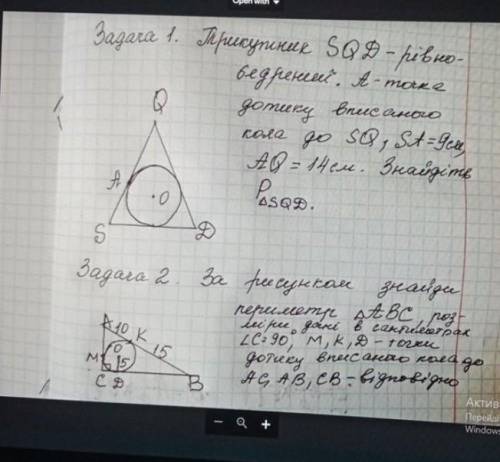 Open with
Задача 1. Трикутник SQD - рівно-
бедрений. А - точка
дотику вписаного
кола до SQ, SA = 9см,
AQ = 14 см. Знайдіть
P△SQD.
Q
A
O
S
D
Задача 2. За рисунком знайди
периметр △ABC, роз-
міри дані в сантиметрах
∠C=90, M, K, D - точки
дотику вписаного кола до
AC, AB, CB - відповідно
A
10
K
O
15
M
5
C D
B
Актив
Перейді
Windows